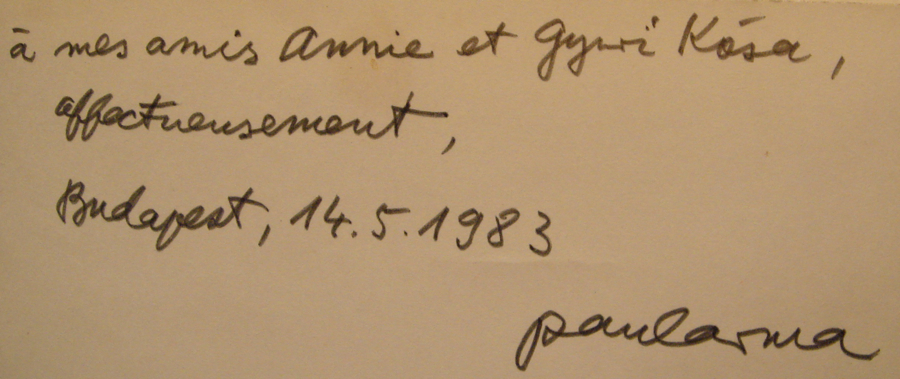 à mes amis Annie et Gyuri Kósa,
affectueusement,
Budapest, 14.5.1983
paularma